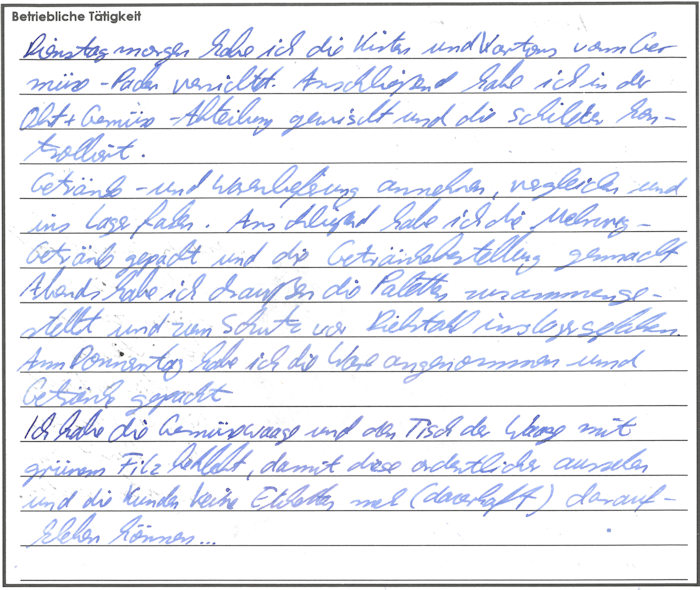 Betriebliche Tätigkeit
Dienstag morgen habe ich die Kisten und Kartons vom Ge-
müse-Packen vernichtet. Anschließend habe ich in der
Obst + Gemüse-Abteilung gewischt und die Schilder kon-
trolliert.
Getränke- und Warenlieferung annehmen, vergleichen und
ins Lager fahren. Anschließend habe ich die Mehrweg-
Getränke gepackt und die Getränkebestellung gemacht
Abends habe ich draußen die Paletten zusammenge-
stellt und zum Schutz vor Diebstahl ins Lager gefahren.
Am Donnerstag habe ich die Ware angenommen und
Getränke gepackt
Ich habe die Gemüsewaage und den Tisch der Waage mit
grünem Filz beklebt, damit diese ordentlicher aussehen
und die Kunden keine Etiketten mehr (dauerhaft) darauf-
kleben können...